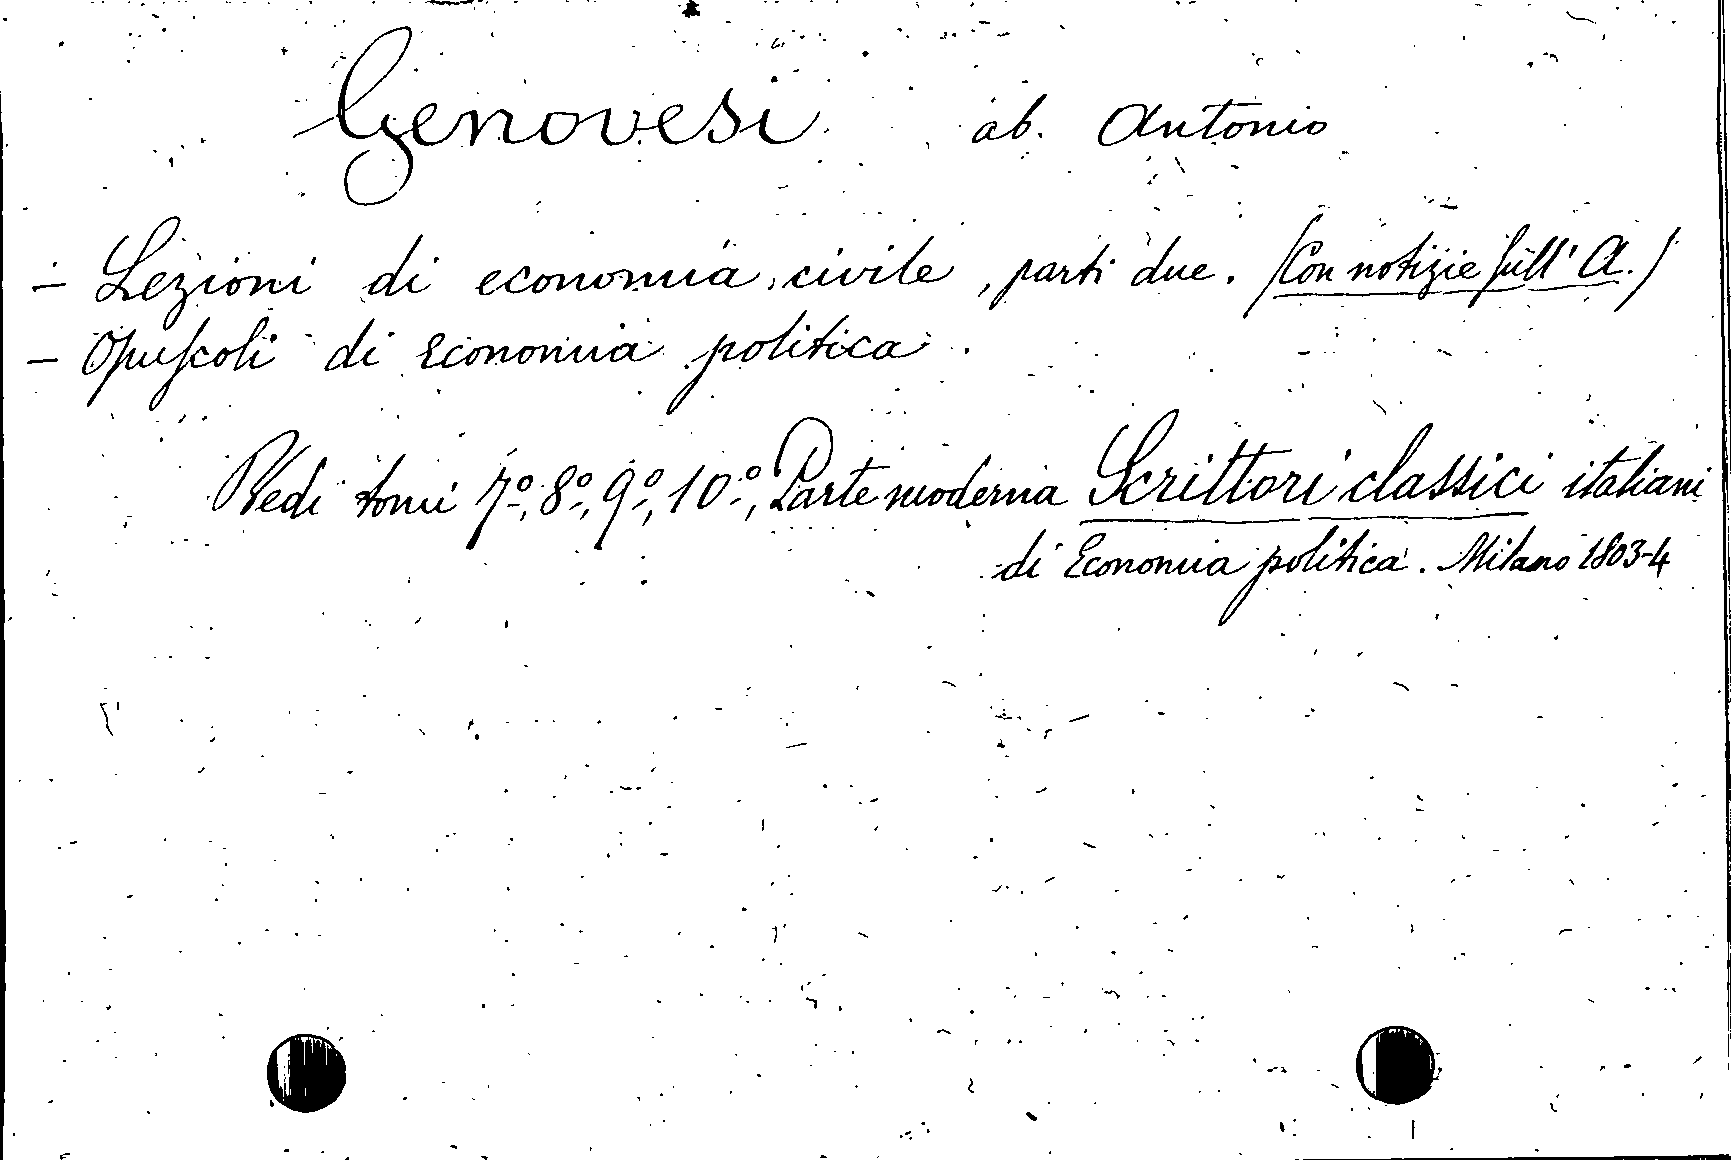 Genovesi ab. Antonio
- Lezioni di economia civile, parti due. (Con notizie sull' A.)
- Opuscoli di Economia politica.
Vedi tomi 7º, 8º, 9º, 10º, Parte moderna Scrittori classici italiani
di Economia politica. Milano 1803-4